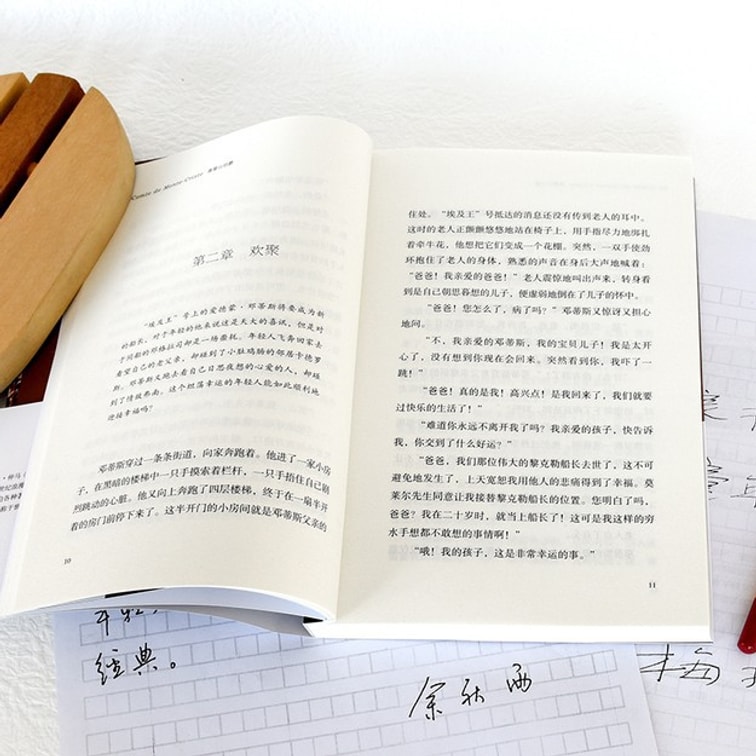 Comte de Monte-Cristo 基督山伯爵
第二章 欢聚
“埃及王”号上的爱德蒙·邓蒂斯将要成为新
的船长，对于年轻的他来说这是天大的喜讯，但是对
于同船的邓格拉司却是一场委托。年轻人飞奔回家去
看望自己的老父亲，却碰到了小肚鸡肠的邻居卡德罗
斯。邓蒂斯又跑去看自己日思夜想的心爱的人，却碰
到了情敌弗南。这个坦荡幸运的年轻人能如此顺利地
迎接幸福吗？
邓蒂斯穿过一条条街道，向家奔跑着。他进了一家小房
子，在黑暗的楼梯中一只手摸索着栏杆，一只手捂住自己剧
烈跳动的心脏。他又向上奔跑了四层楼梯，终于在一扇半开
着的房门前停下来了。这半开门的小房间就是邓蒂斯父亲的
10
住处。“埃及王”号抵达的消息还没有传到老人的耳中。
这时的老人正颤颤悠悠地站在椅子上，用手指尽力地绑扎
着牵牛花，他想把它们变成一个花棚。突然，一双手使劲
环抱住了老人的身体，熟悉的声音在身后大声地喊着：
“爸爸！我亲爱的爸爸！”老人震惊地叫出声来，转身看
到是自己朝思暮想的儿子，便虚弱地倒在了儿子的怀中。
“爸爸！您怎么了，病了吗？”邓蒂斯又惊讶又担心
地问。
“不，我亲爱的邓蒂斯，我的宝贝儿子！我是太开
心了，没有想到你现在会回来。突然看到你，我吓了一
跳！”
“爸爸！真的是我！高兴点！是我回来了，我们就要
过快乐的生活了！”
“难道你永远不离开我了吗？我亲爱的孩子，快告诉
我，你交到了什么好运？”
“爸爸，我们那位伟大的黎克勒船长去世了，这不可
避免地发生了，上天宽恕我用他人的悲痛得到了幸福。莫
莱尔先生同意让我接替黎克勒船长的位置。您明白了吗，
爸爸？我在二十岁时，就当上船长了！这可是我这样的穷
水手想都不敢想的事情啊！”
“哦！我的孩子，这是非常幸运的事。”
11
经典。
余秋雨
梅